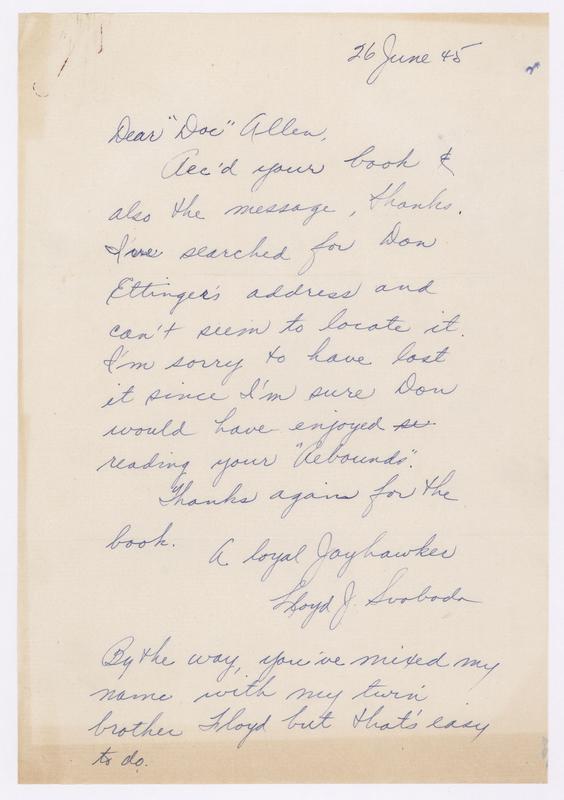 26 June 45
Dear "Doc" Allen,
Rec'd your book &
also the message, thanks.
I've searched for Don
Ettinger's address and
can't seem to locate it.
I'm sorry to have lost
it since I'm sure Don
would have enjoyed se
reading your "Rebounds".
Thanks again for the
book.
A loyal Jayhawker
Lloyd J. Svoboda
By the way, you've mixed my
name with my twin
brother Floyd but that's easy
to do.